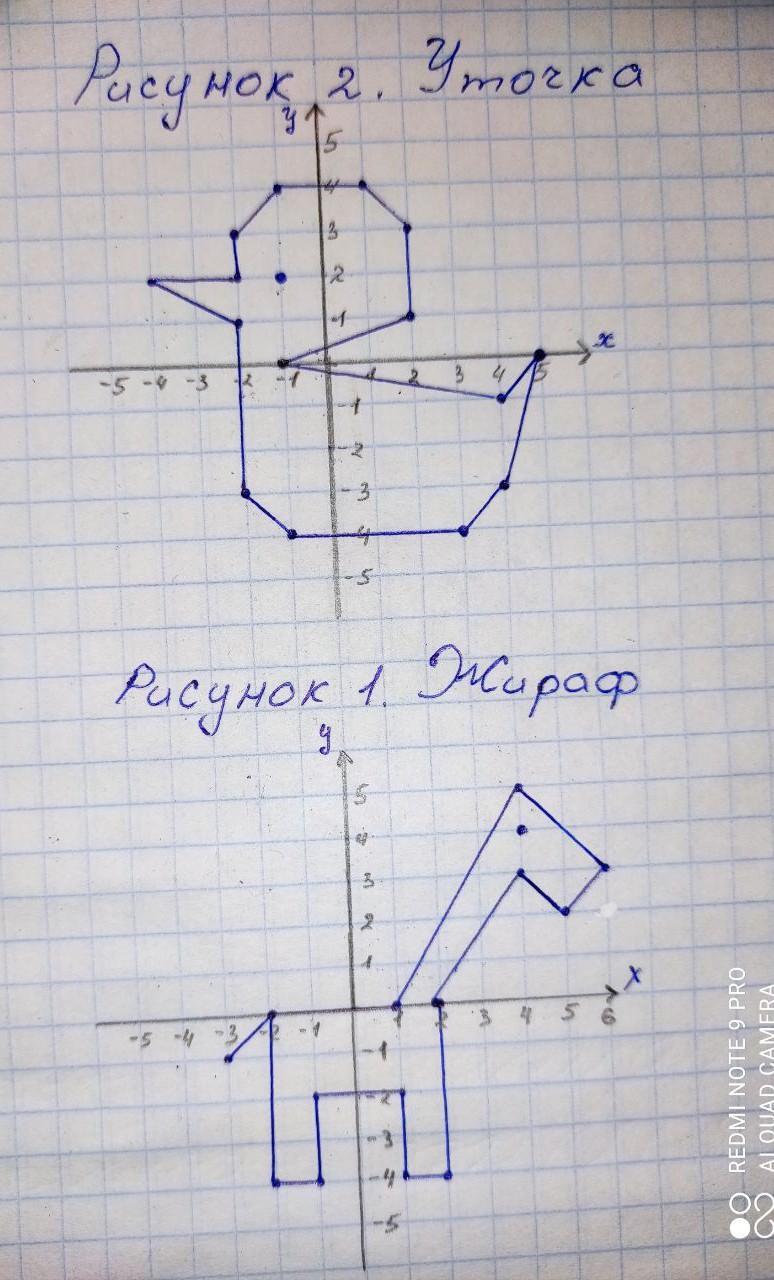 Рисунок 2. Уточка
у
5
4
3
2
1
х
-5 -4 -3 -2 -1 1 2 3 4 5
-1
-2
-3
4
-5
Рисунок 1. Жираф
у
5
4
3
2
1
х
-5 -4 -3 -2 -1 1 2 3 4 5 6
-1
-2
-3
-4
-5
REDMI NOTE 9 PRO
AI QUAD CAMERA